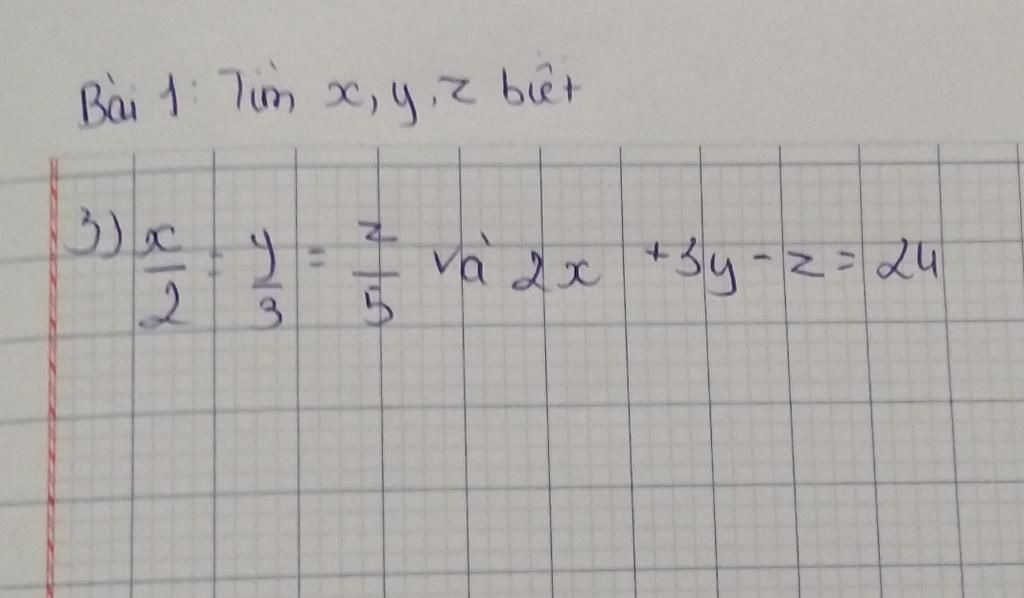 Bài 1: Tìm x, y, z biết
3) x/2 = y/3 = z/5 và 2x + 3y - z = 24